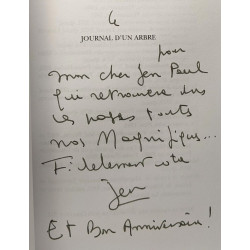 Le
JOURNAL D'UN ARBRE
pour
mon cher Jen Paul
qui retrouvera dans
les pages toutes
nos Magnifiques...
Fidelement vôtre
Jen
Et Bon Anniversaire !